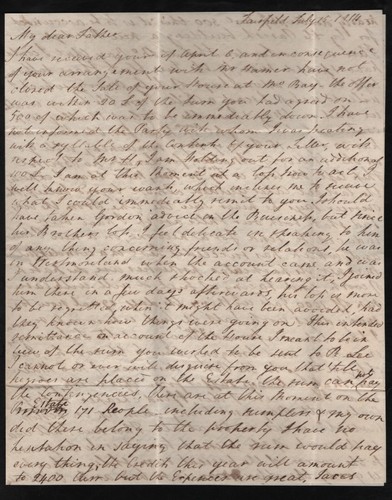 Fairfield July 26 1814
My dear Father
I have received your of April 6 and in consequence
of your arrangement with Mr have not
closed the Sale of your House at Mo Bay. the offer
was within 20 £ of the Sum you had agreed on
500 of which was to be immediately down. I have
not informed the Party with whom I was treating
with a syllable of the contents of your Letter, with
respect to Mr H, I am holding out for an additional
100£. I am at this moment at a loss how to act,
will knowing your wants, which inclines me to secure
what I could immediately remit to you. I should
have taken Gordon advice on the Business, but since
his Brothers loss I feel delicate in speaking to him
of any thing concerning friends or relations, he was
in Westmoreland when the account came and was
I understand much shocked at hearing it, I joined
him there in a few days afterwards, his loss is more
to be regretted, when it might have been avoided, had
they known how things were going on. This intended
remittance on account of the House I want to be in
lieu of the rum you wished to be sent to B as
I cannot or ever will disguise from you that till
negroes are placed on the Estate the rum can not pay
the Contingencies, there are at this moment on the
Estate 171 People including & my own
did these belong to the property I have no
hesitation in saying that the rum would pay
every thing, the credits this year will amount
to 2400 Curr. but the Expences are great, Taxes